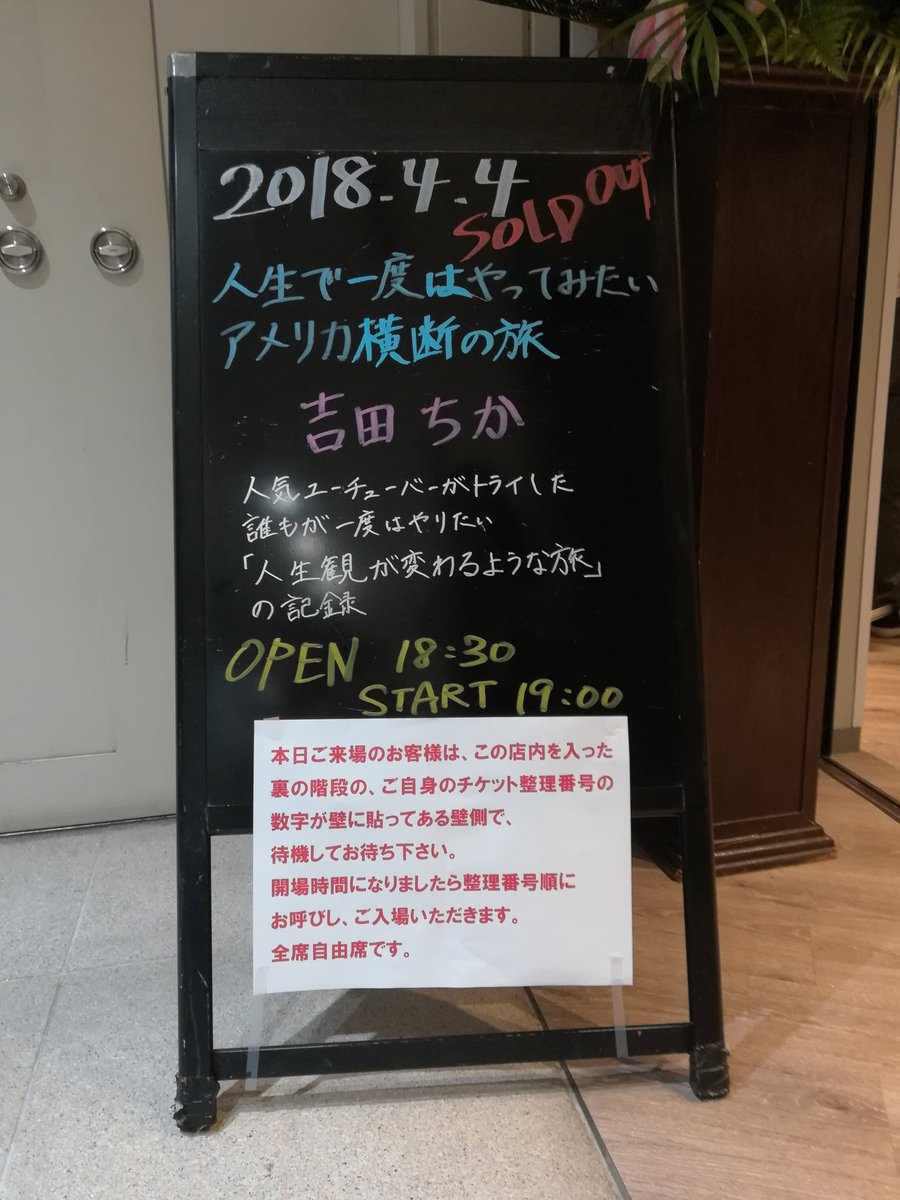 2018.4.4
SOLD OUT
人生で一度はやってみたい
アメリカ横断の旅
吉田ちか
人気ユーチューバーがトライした
誰もが一度はやりたい
「人生観が変わるような旅」
の記録
OPEN 18:30
START 19:00
本日ご来場のお客様は、この店内を入った
裏の階段の、ご自身のチケット整理番号の
数字が壁に貼ってある壁側で、
待機してお待ち下さい。
開場時間になりましたら整理番号順に
お呼びし、ご入場いただきます。
全席自由席です。